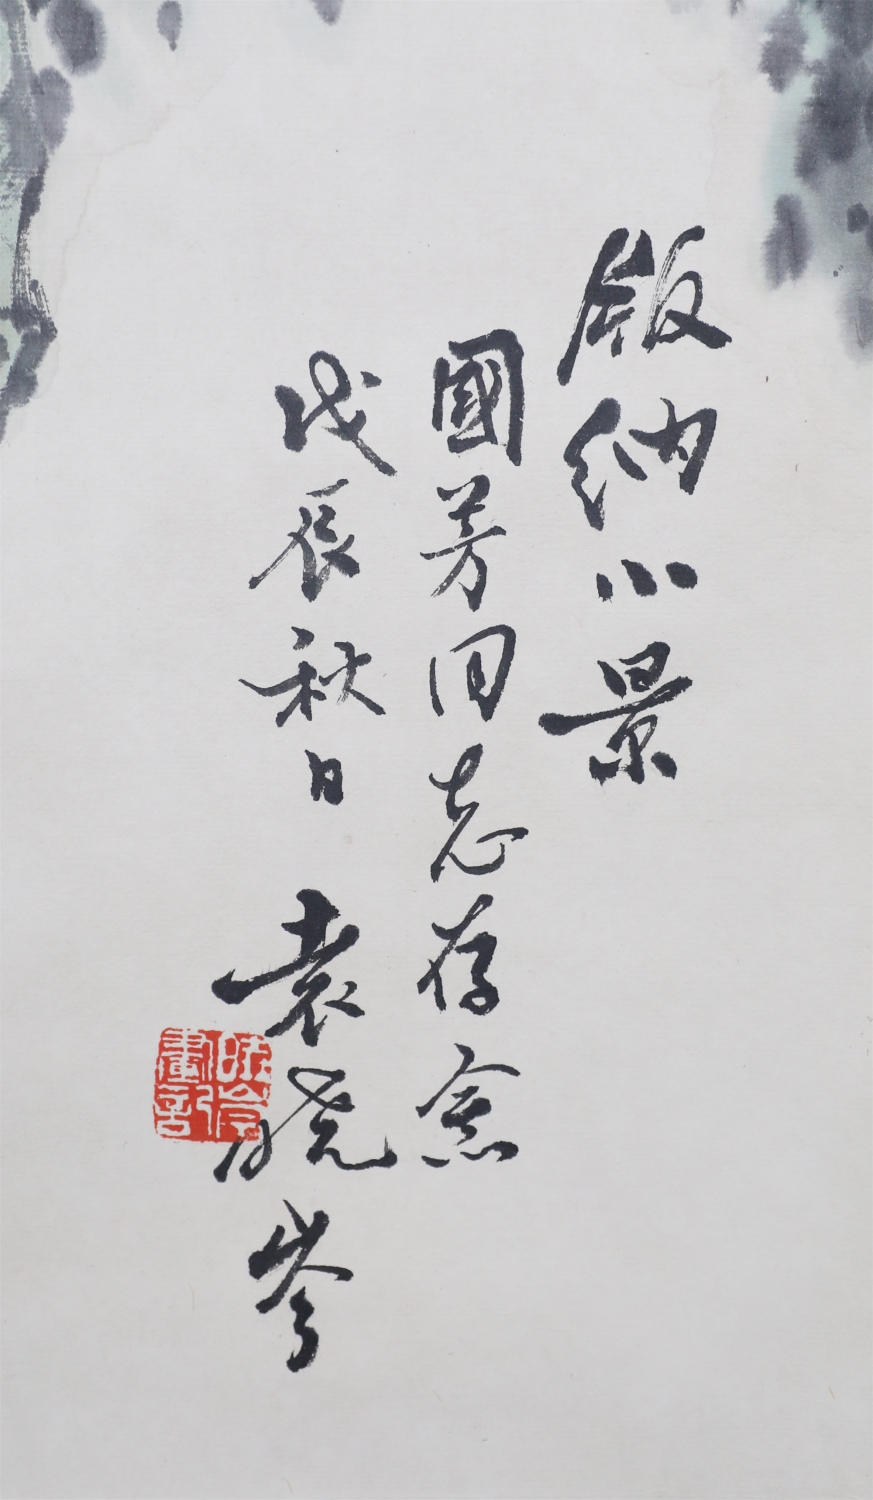 版纳小景
國芳同志存念
戊辰秋日 袁晓岑